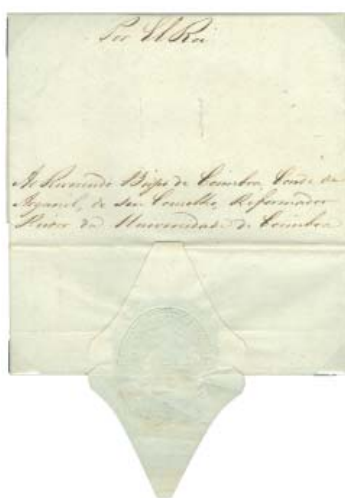 Por El Rei
Ao Reverendo Bispo de Coimbra, Conde de
Arganil, do seu Conselho, Reformador
Reitor da Universidade de Coimbra